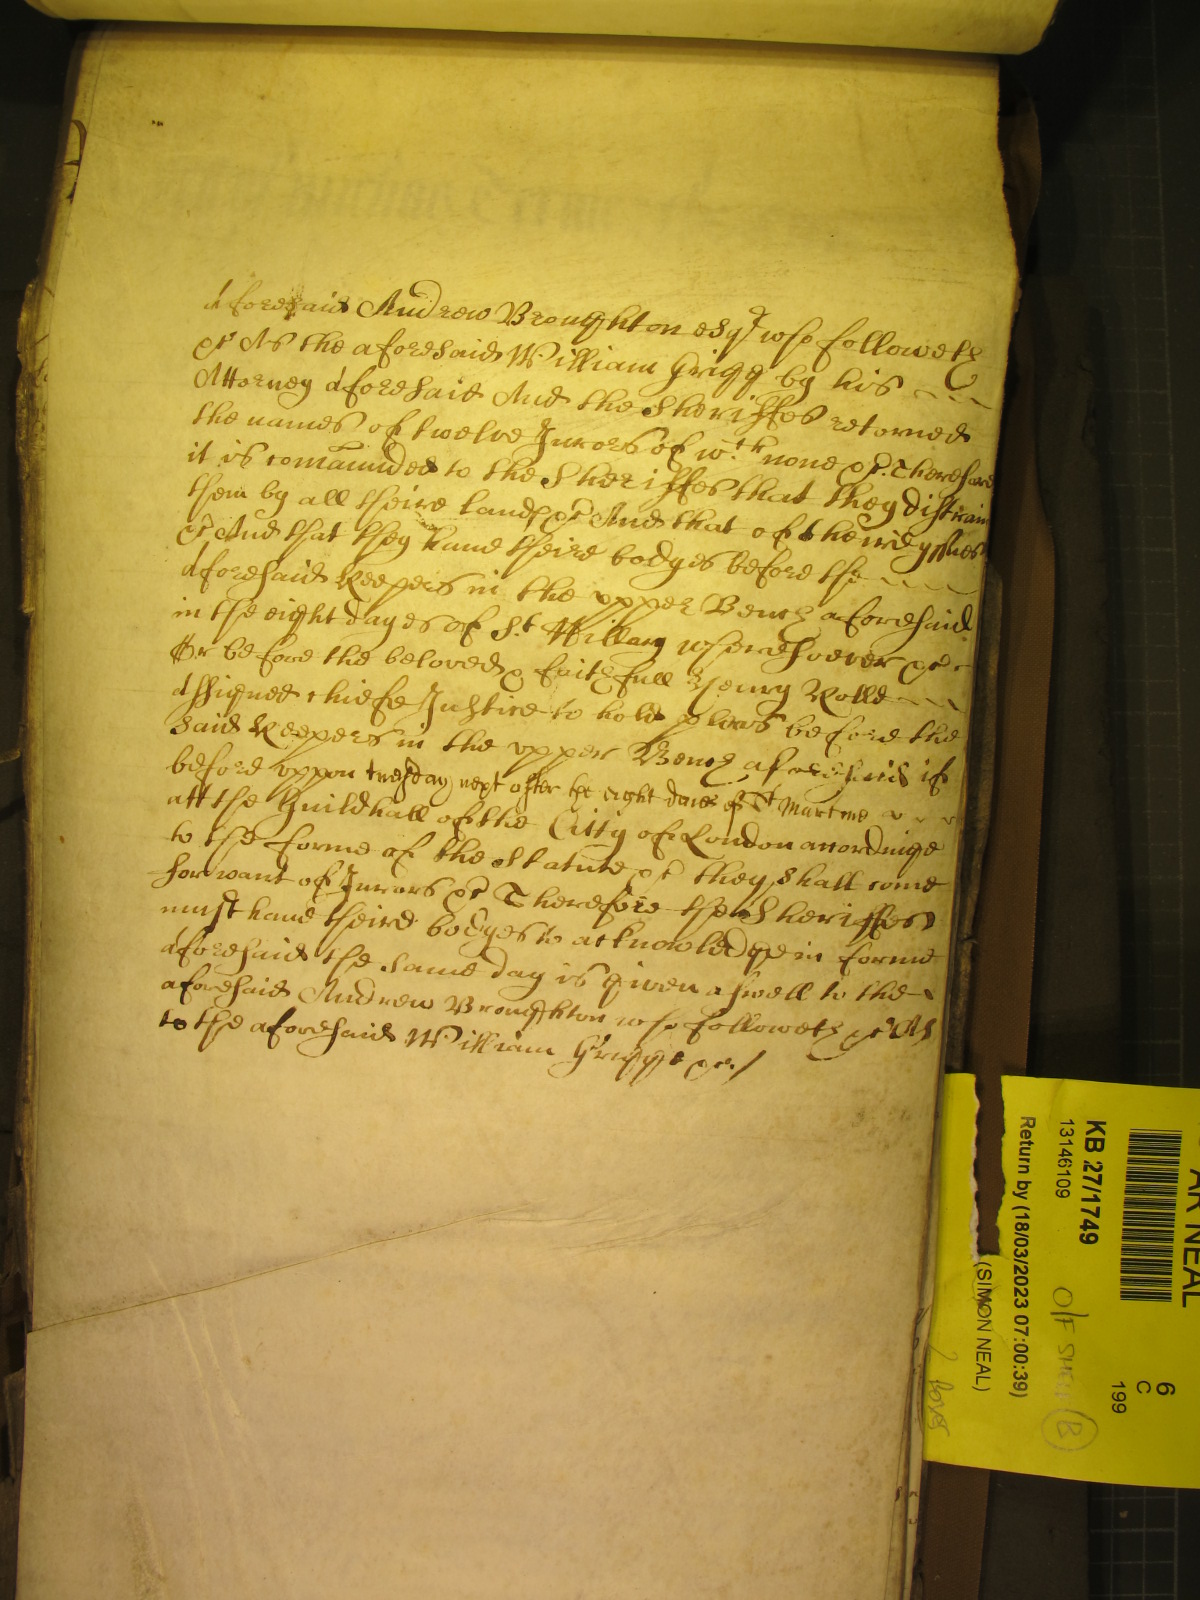 aforesaid Andrew Broughton esqr who followeth
&c As the aforesaid William Grigg by his
Attorney aforesaid And the Sheriffes retorned
the names of twelve Jurors of wch none &c. Therefore
it is comaunded to the Sheriffes that they distrain
them by all theire lands &c And that of the issues
&c And that they haue theire bodyes before the
aforesaid Keepers in the vpper Bench aforesaid
in the eight dayes of St Hillary wheresoever &c
Or before the beloved & faithfull Henry Rolle
assigned chiefe Justice to hold pleas before the
said Keepers in the vpper Bench aforesaid if
before vppon tuesday next after the eight daies of St Martine
att the Guildhall of the Citty of London accordinge
to the forme of the Statute &c they shall come
for want of Jurors &c Therefore the Sheriffes
must haue theire bodyes to acknowledge in forme
aforesaid the same day is given aswell to the
aforesaid Andrew Broughton who followeth &c As
to the aforesaid William Grigge &c./
AR NEAL
6
C
199
KB 27/1749
13146109
O/F SHELF (B)
Return by (18/03/2023 07:00:39)
(SIMON NEAL)